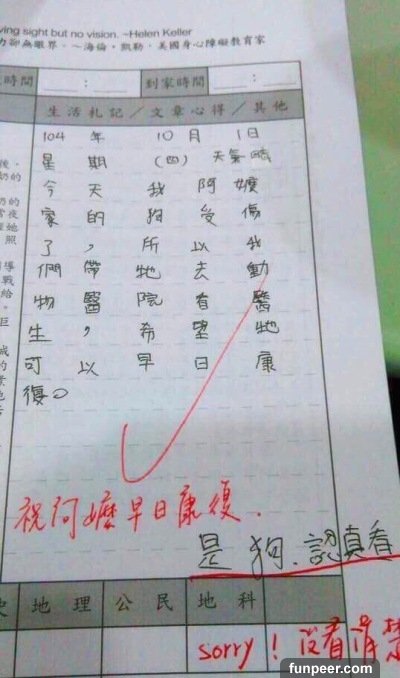 ving sight but no vision. ~Helen Keller
力卻無眼界。~海倫．凱勒．美國身心障礙教育家
時間 : 到家時間 :
生活札記／文章心得／其他
104 年 10 月 1日
星期 (四) 天氣晴
今天我阿嬤
家的狗受傷
了，所以我
們帶牠去動
物醫院有醫
生，希望牠
可以早日康
復。
祝阿嬤早日康復.
是狗.認真看
地理 公民 地科
sorry！沒看清楚
funpeer.com